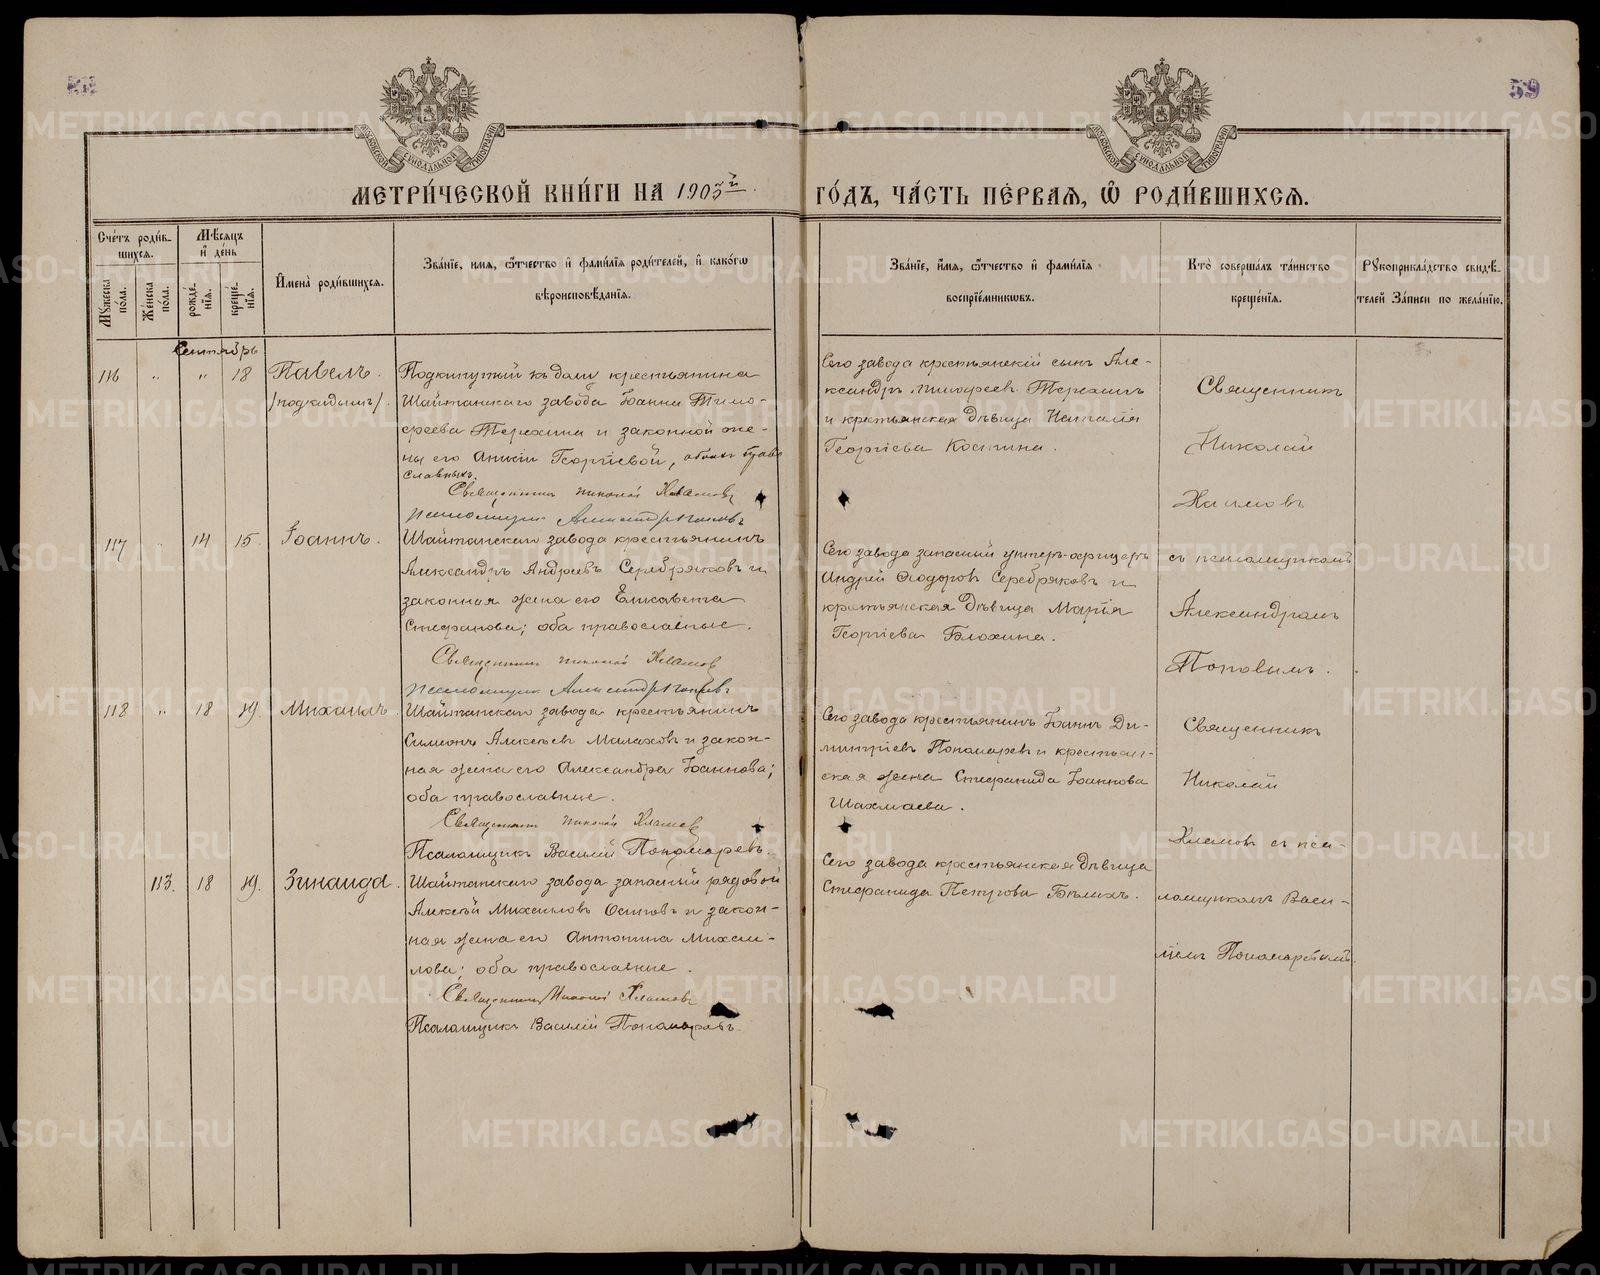 59
МОСКОВСКОЙ СУНОДАЛЬНОЙ ТИПОГРАФІИ
МОСКОВСКОЙ СУНОДАЛЬНОЙ ТИПОГРАФІИ
МЕТРИ́ЧЕСКОЙ КНИ́ГИ НА 1905й
ГО́ДЪ, ЧА́СТЬ ПЕ́РВАЯ, Ѡ РОДИ́ВШИХСЯ.
Сче́тъ роди́в-
шихся.
Мꙋжеска
по́ла.
Же́нска
по́ла.
Мѣ́сяцъ
и̂ де́нь
рожде́-
нїя.
креще́-
нїя.
И҆мена̀ роди́вшихся.
Зва́нїе, имя, ѻтчество и̂ фами́лїя роди́телей, и̂ како́гѡ
вѣроисповѣ́данїя.
Зва́нїе, и́мя, ѻтчество и̂ фами́лїя
воспрїе́мникѡвъ.
Кто̀ соверша́лъ та́инство
креще́нїя.
Рꙋкоприкла́дство свидѣ́-
телей За́писи по жела́нїю.
Сентябрь
116 „ „ 18 Павелъ.
/подкидышъ/.
Подкинутый къ дому крестьянина
Шайтанскаго завода Іоанна Тимо-
феева Терехина и законной же-
ны его Георгіевой, обоихъ право
славныхъ.
Священникъ Николай
Псаломщикъ Александръ Поповъ
Сего завода крестьянскій сынъ Але-
ксандръ Тимофеевъ Терехинъ
и крестьянская дѣвица Наталія
Георгіева Костина.
Священникъ
Николай
117 „ 14 15. Іоаннъ.
Шайтанскаго завода крестьянинъ
Александръ Андреевъ Серебряковъ и
законная жена его Елисавета
Стефанова; оба православные.
Священникъ Николай
Псаломщикъ Александръ Поповъ
Сего завода запасный унтеръ-офицеръ
Андрей Ѳеодоровъ Серебряковъ и
крестьянская дѣвица Марія
Георгіева Блохина.
съ псаломщикомъ
Александромъ
Поповымъ.
118 „ 18 19. Михаилъ.
Шайтанскаго завода крестьянинъ
Симеонъ Алексѣевъ Малаховъ и закон-
ная жена его Александра Іоаннова;
оба православные.
Священникъ Николай
Псаломщикъ Василій Пономаревъ.
Сего завода крестьянинъ Іоаннъ Ди-
митріевъ Пономаревъ и крестьян-
ская жена Стефанида Іоаннова
Шахмаева.
Священникъ
Николай
съ пса-
113. 18 19. Зинаида.
Шайтанскаго завода запасный рядовой
Алексѣй Михаиловъ Осиповъ и закон-
ная жена его Антонина Михаи-
лова; оба православные.
Священникъ Николай
Псаломщикъ Василій Пономаревъ.
Сего завода крестьянская дѣвица
Стефанида Петрова Бѣлыхъ.
ломщикомъ Васи-
ліемъ Пономаревымъ.
METRIKI.GASO-URAL.RU